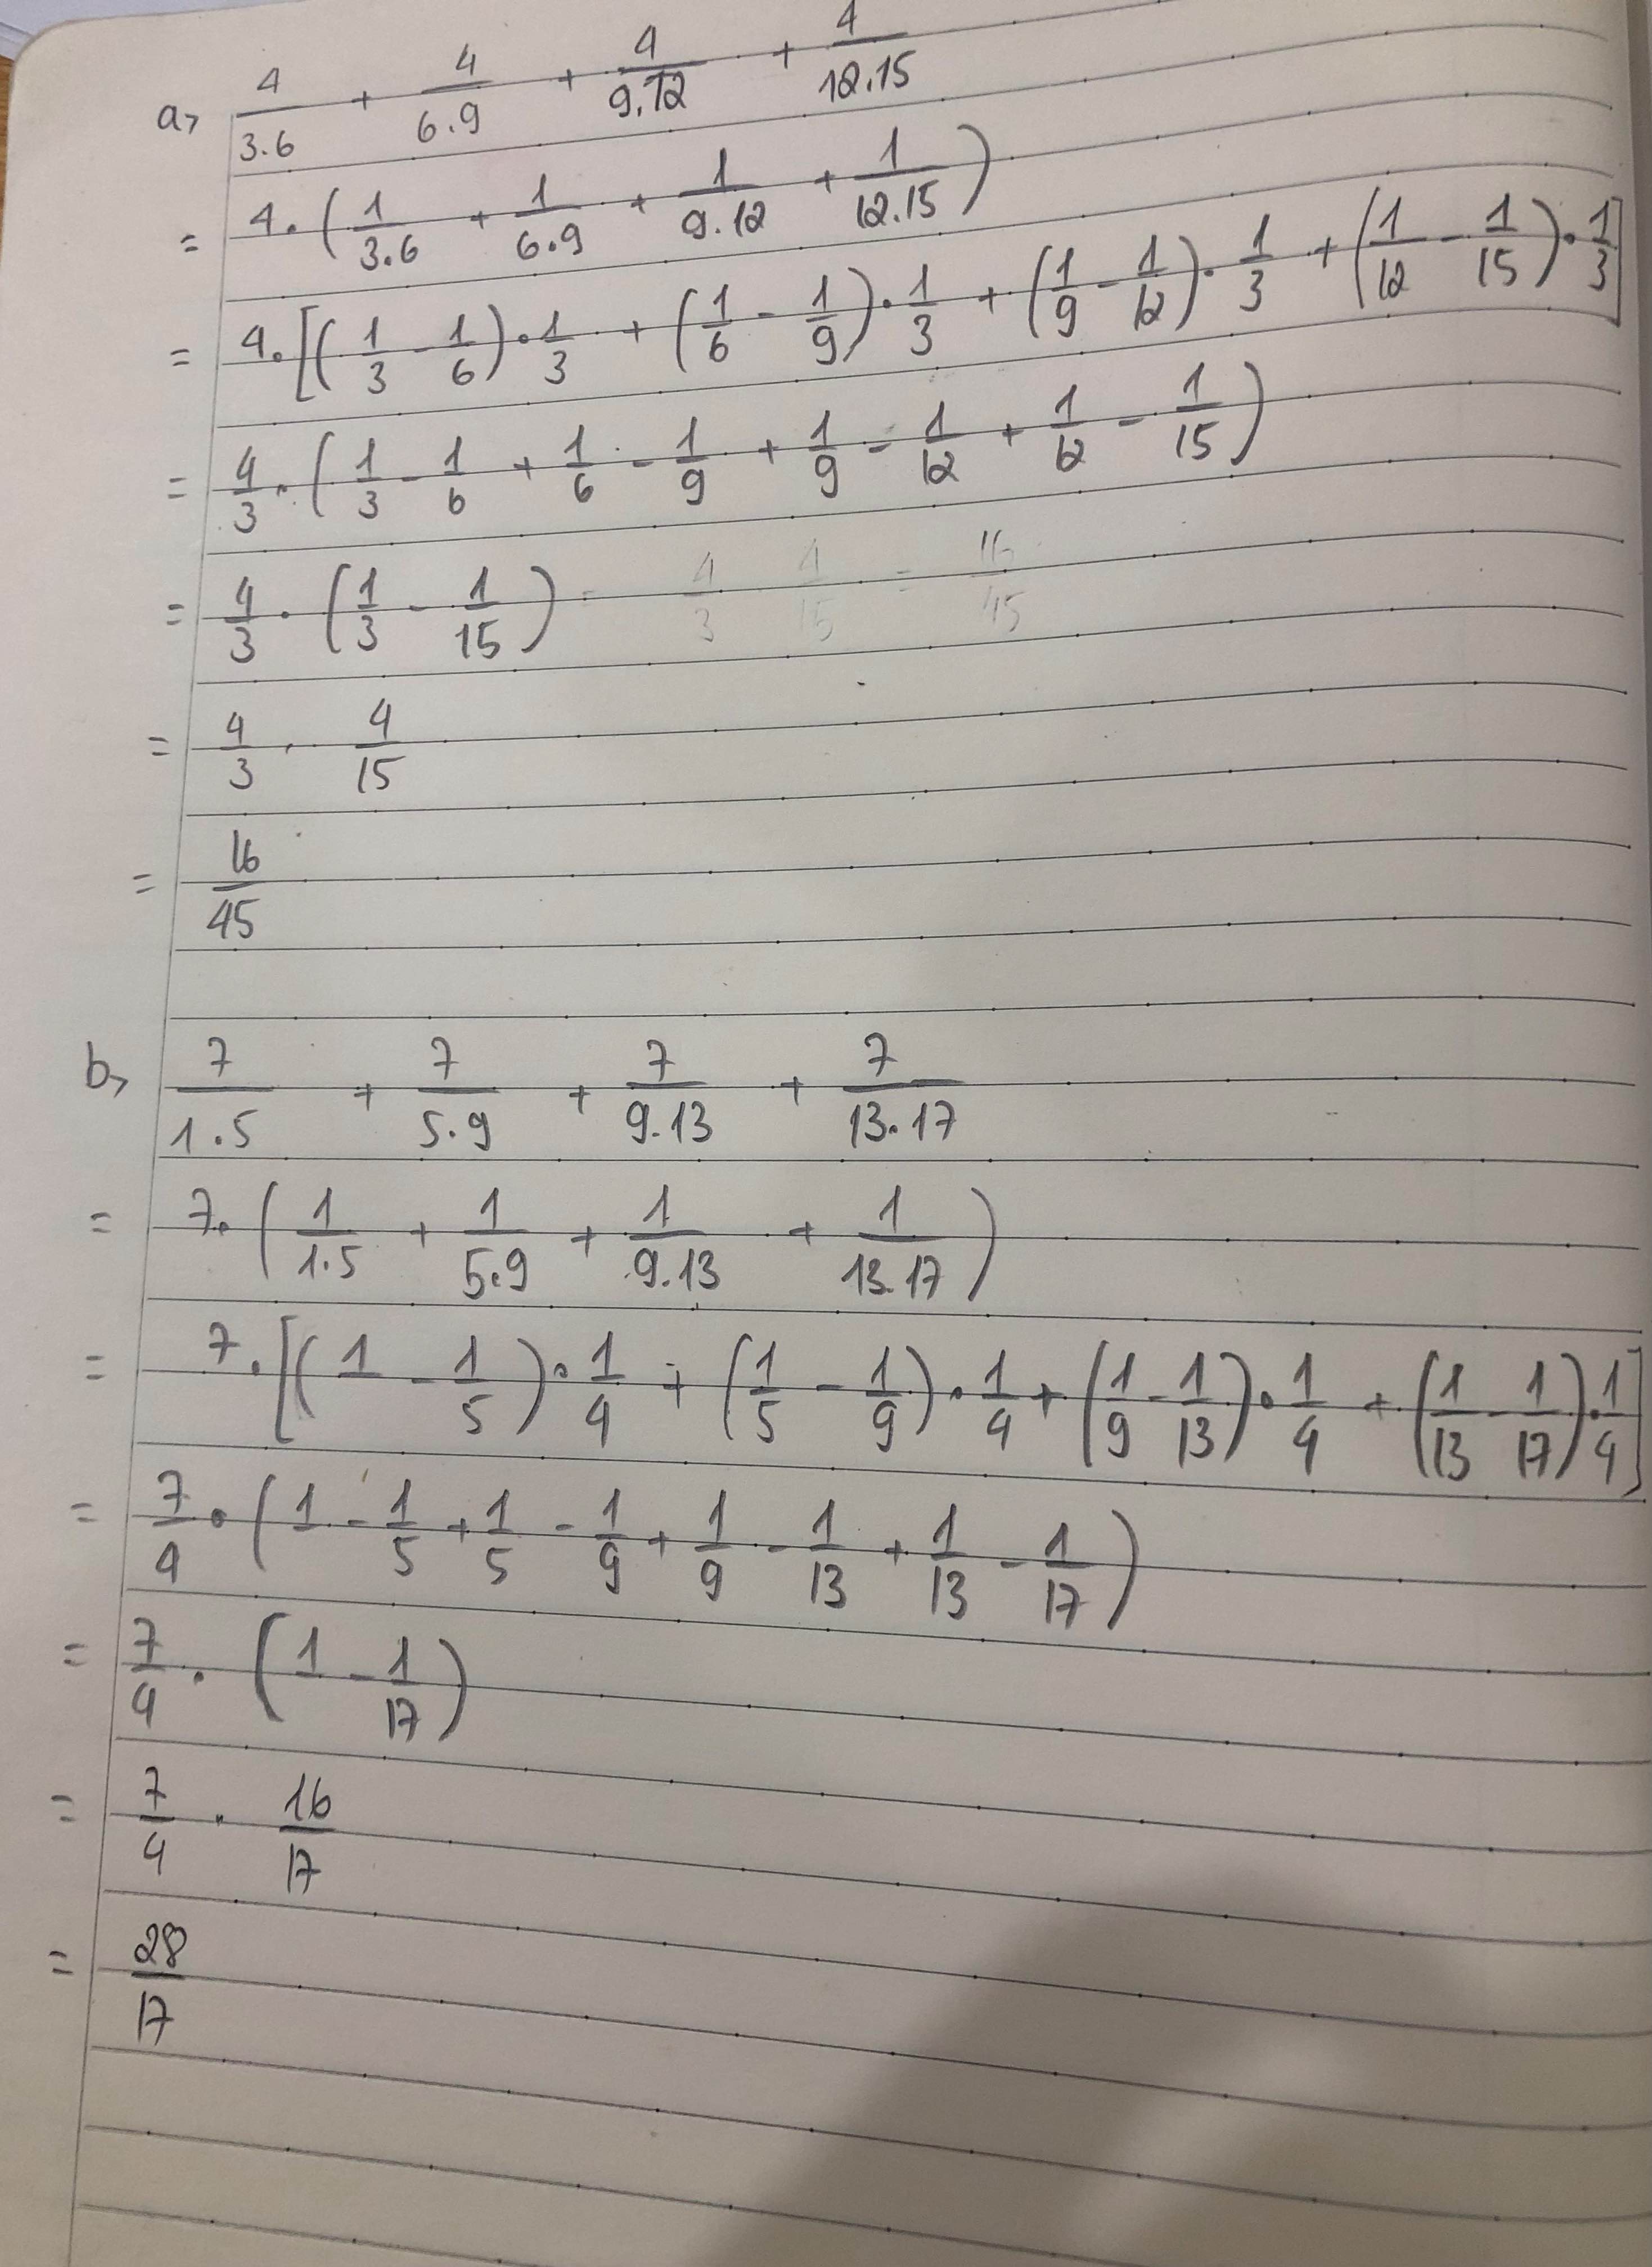 a, 4/3.6 + 4/6.9 + 4/9.12 + 4/12.15
= 4.(1/3.6 + 1/6.9 + 1/9.12 + 1/12.15)
= 4.[(1/3 - 1/6).1/3 + (1/6 - 1/9).1/3 + (1/9 - 1/12).1/3 + (1/12 - 1/15).1/3]
= 4/3.(1/3 - 1/6 + 1/6 - 1/9 + 1/9 - 1/12 + 1/12 - 1/15)
= 4/3.(1/3 - 1/15) = 4/3 4/15 = 16/45
= 4/3 . 4/15
= 16/45
b, 7/1.5 + 7/5.9 + 7/9.13 + 7/13.17
= 7.(1/1.5 + 1/5.9 + 1/9.13 + 1/13.17)
= 7.[(1 - 1/5).1/4 + (1/5 - 1/9).1/4 + (1/9 - 1/13).1/4 + (1/13 - 1/17).1/4]
= 7/4.(1 - 1/5 + 1/5 - 1/9 + 1/9 - 1/13 + 1/13 - 1/17)
= 7/4.(1 - 1/17)
= 7/4 . 16/17
= 28/17